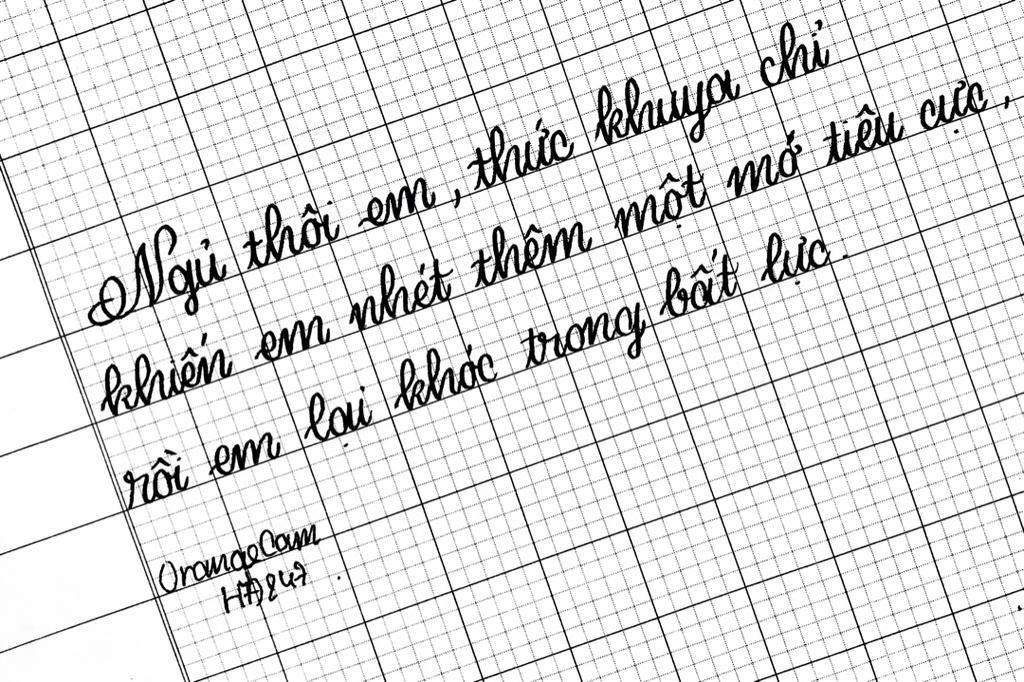 Ngủ thôi em, thức khuya chỉ
khiến em nhét thêm một mớ tiêu cực,
rồi em lại khóc trong bất lực.
OrangeCam